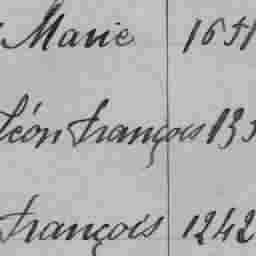 Marie 1651
Léon François 135
François 1242